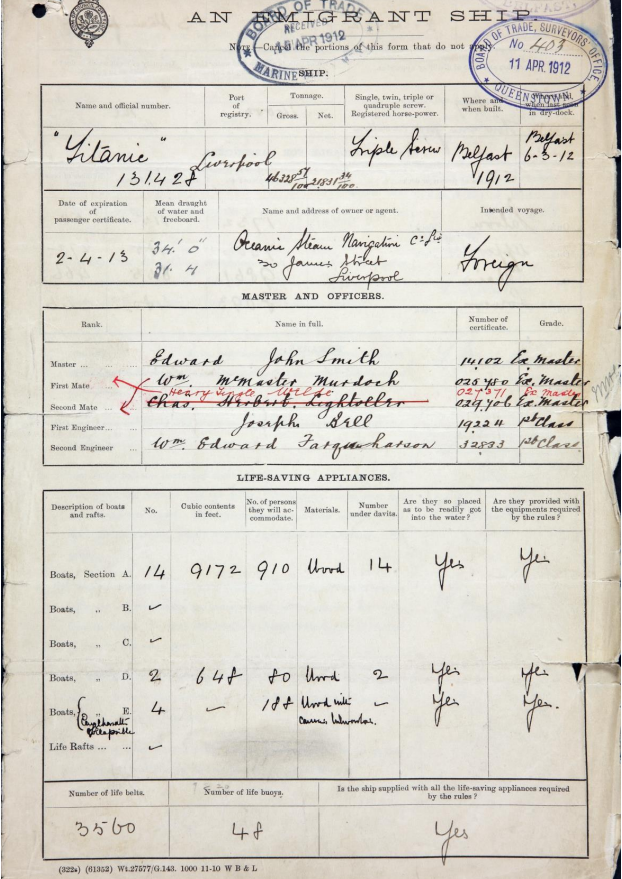 AN EMIGRANT SHIP.
BOARD OF TRADE
RECEIVED
APR 1912
MARINE
BOARD OF TRADE, SURVEYORS' OFFICE
No 403
11 APR. 1912
QUEENSTOWN
Note—Cancel the portions of this form that do not apply
SHIP.
Name and official number.
Port of registry.
Tonnage.
Gross.
Net.
Single, twin, triple or quadruple screw. Registered horse-power.
Where and when built.
when last in dry-dock.
"Titanic"
131428
Liverpool
46328 57/100
21831 34/100
Triple Screw
Belfast
1912
Belfast
6-3-12
Date of expiration of passenger certificate.
Mean draught of water and freeboard.
Name and address of owner or agent.
Intended voyage.
2-4-13
34' 0"
31. 4
Oceanic Steam Navigation Co Ld
30 James Street
Liverpool
Foreign
MASTER AND OFFICERS.
Rank.
Name in full.
Number of certificate.
Grade.
Master ... ... Edward John Smith 14102 Ex Master
First Mate Wm. McMaster Murdoch 025780 Ex. Master
Henry Tingle Wilde 027371 Ex Master
Second Mate ... Chas. Herbert. Lightoller 029706 Ex. Master
First Engineer ... Joseph Bell 19224 1st Class
Second Engineer Wm. Edward Farquharson 32833 1st Class
LIFE-SAVING APPLIANCES.
Description of boats and rafts.
No.
Cubic contents in feet.
No. of persons they will accommodate.
Materials.
Number under davits.
Are they so placed as to be readily got into the water?
Are they provided with the equipments required by the rules?
Boats, Section A. 14 9172 910 Wood 14 Yes Yes
Boats, " B. ✓
Boats, " C. ✓
Boats, " D. 2 648 80 Wood 2 Yes Yes
Boats, " E. 4 188 Wood with Yes Yes.
Engelhardt
Collapsible
canvas bulwarks.
Life Rafts ... ... ✓
Number of life belts.
Number of life buoys.
Is the ship supplied with all the life-saving appliances required by the rules?
3560
48
Yes
(322s) (61352) Wt.27577/G.143. 1000 11-10 W B & L